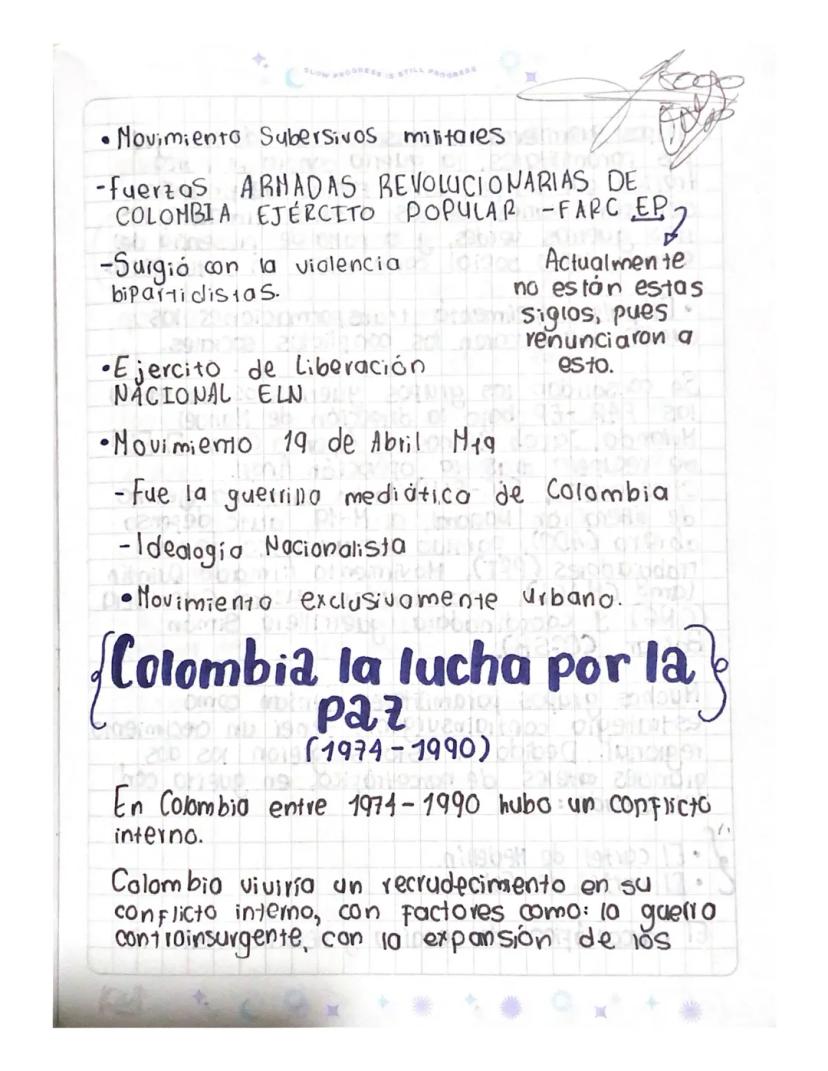 SLOW PROGRESS IS STILL PROGRESS
• Movimiento Subersivos militares
-fuerzas ARMADAS REVOLUCIONARIAS DE
COLOMBIA EJÉRCITO POPULAR -FARC EP
-Surgió con la violencia
bipartidistas.
Actualmente
no están estas
siglas, pues
renunciaron a
esto.
•Ejercito de Liberación
NACIONAL ELN
•Movimiento 19 de Abril M19
-Fue la guerrilla mediática de Colombia
-Idealogía Nacionalista
•Movimiento exclusivamente urbano.
{Colombia la lucha por la}
paz
(1974-1990)
En Colombia entre 1974-1990 hubo un conflicto
interno.
Colombia viviría un recrudecimiento en su
conflicto interno, con factores como: la guerra
contrainsurgente, con la expansión de los